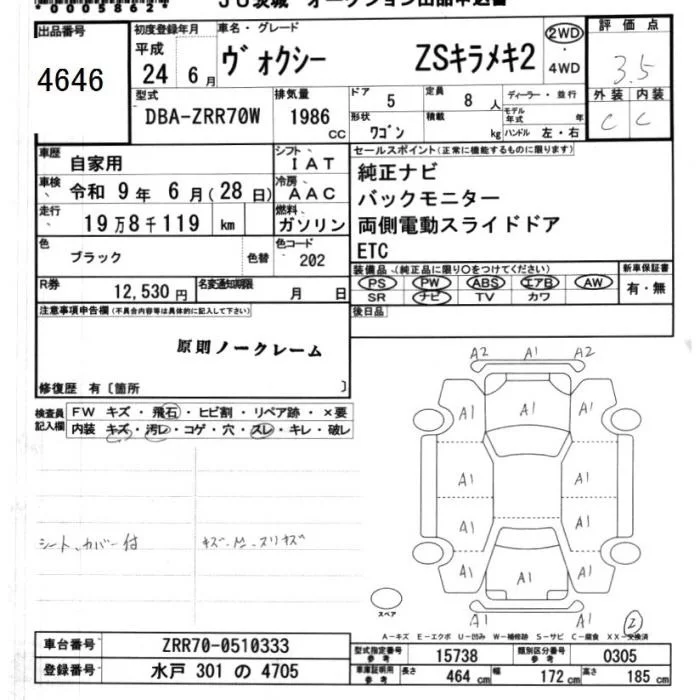 *0005862*
JU茨城 オークション出品申込書
出品番号
4646
初度登録年月
平成
24 6月
車名・グレード
ヴォクシー ZSキラメキ2
2WD
・
4WD
評価点
3.5
外装 内装
C C
型式
DBA-ZRR70W
排気量
1986
cc
ドア
5
定員
8 人
形状
ワゴン
積載
kg
ディーラー・並行
モデル年式 年
ハンドル 左・右
車歴
自家用
シフト
IAT
車検
令和 9年 6月(28日)
冷房
AAC
走行
19万8千119 km
燃料
ガソリン
色
ブラック
色替
色コード
202
R券
12,530円
名変通知期限
月 日
セールスポイント(正常に機能するものに限ります)
純正ナビ
バックモニター
両側電動スライドドア
ETC
装備品、(純正品に限り○をつけてください)
PS PW ABS エアB AW
SR ナビ TV カワ
新車保証書
有・無
後日品
注意事項申告欄(不具合内容等は具体的に記入して下さい)
原則ノークレーム
修復歴 有〔箇所 〕
検査員記入欄
FW キズ・飛石・ヒビ割・リペア跡・×要
内装 キズ・汚レ・コゲ・穴・スレ・キレ・破レ
シート、カバー付
A2 A1 A2
A1 A1 A1
A1 A1
A1 A1
A1 A1 A1
A1
スペア
2
A-キズ E-エクボ U-凹み W-補修跡 S-サビ C-腐食 XX-交換済
車台番号 ZRR70-0510333
登録番号 水戸 301 の 4705
型式指定番号
参考
15738
類別区分番号
参考
0305
車庫証明用
参考
長さ 464 cm 幅 172 cm 高さ 185 cm